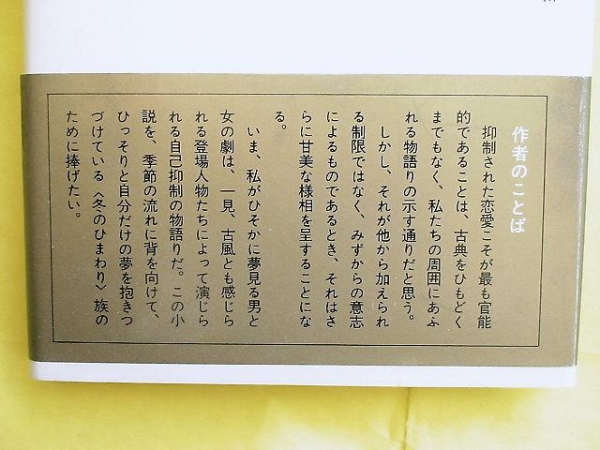 作者のことば
抑制された恋愛こそが最も官能
的であることは、古典をひもどく
までもなく、私たちの周囲にあふ
れる物語りの示す通りだと思う。
しかし、それが他から加えられ
る制限ではなく、みずからの意志
によるものであるとき、それはさ
らに甘美な様相を呈することにな
る。
いま、私がひそかに夢見る男と
女の劇は、一見、古風とも感じら
れる登場人物たちによって演じら
れる自己抑制の物語りだ。この小
説を、季節の流れに背を向けて、
ひっそりと自分だけの夢を抱きつ
づけている〈冬のひまわり〉族の
ために捧げたい。